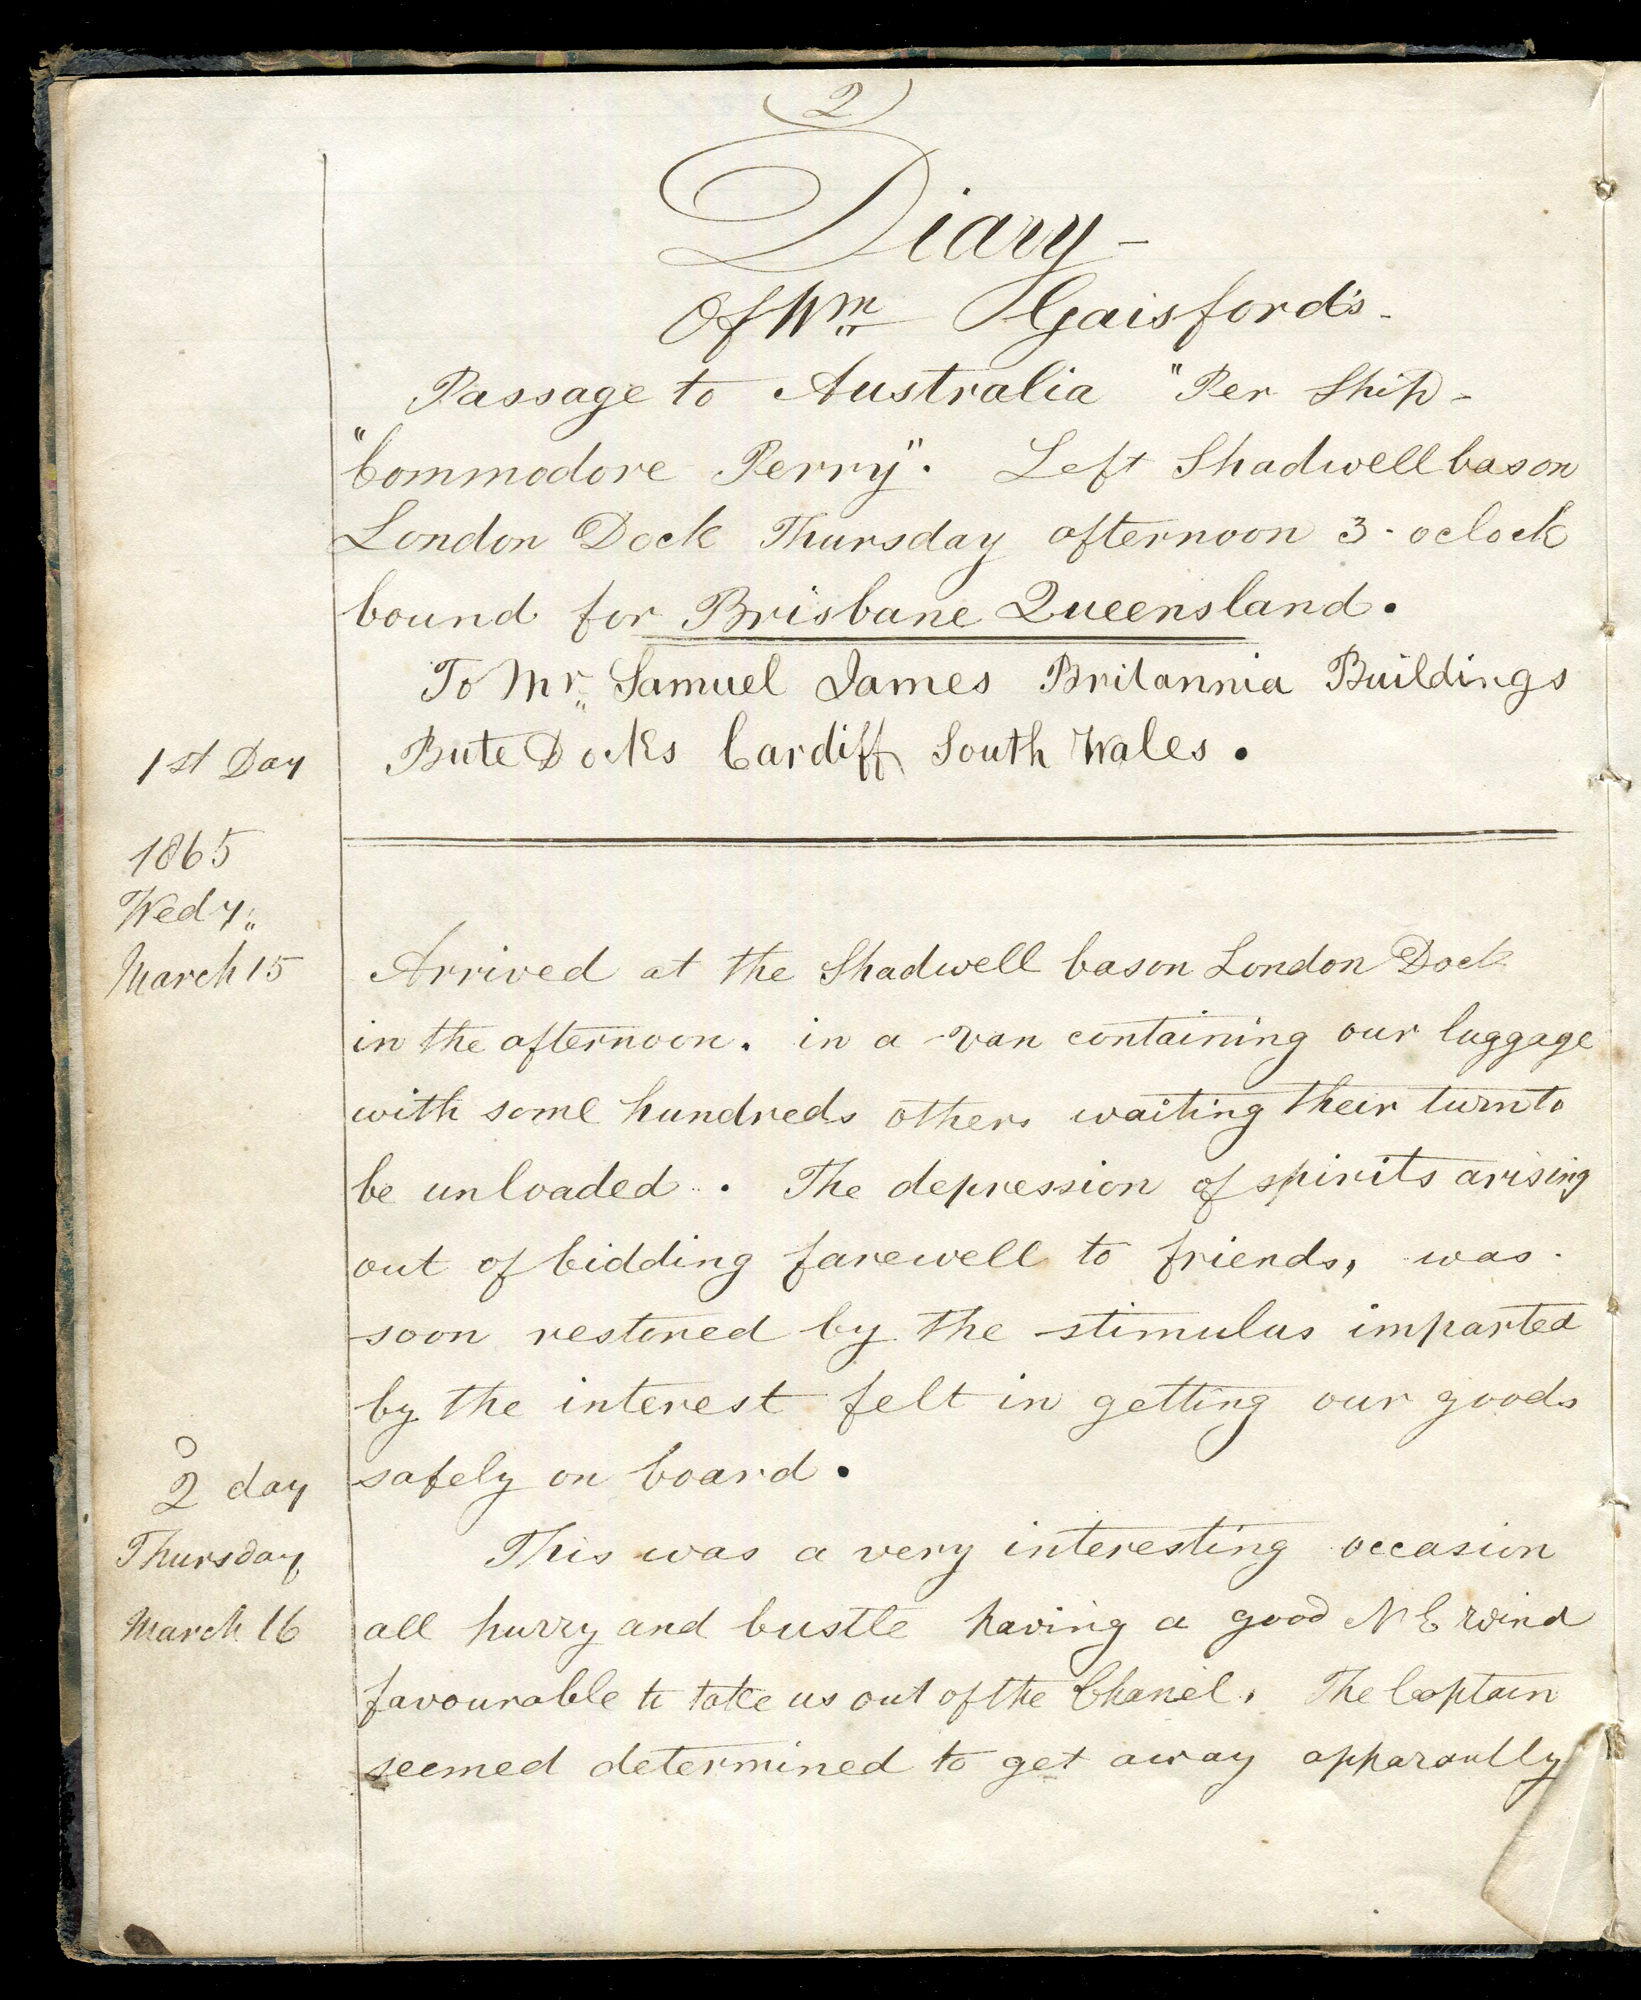 2
Diary -
Of Wm Gaisford's -
Passage to Australia "Per Ship -
"Commodore Perry". Left Shadwell bason
London Dock Thursday afternoon 3 - oclock
bound for Brisbane Queensland.
To Mr. Samuel James Britannia Buildings
Bute Docks Cardiff South Wales.
1st Day
1865
Wedy.
March 15
Arrived at the Shadwell bason London Dock
in the afternoon. in a van containing our luggage
with some hundreds others waiting their turn to
be unloaded. The depression of spirits arising
out of bidding farewell to friends, was
soon restored by the stimulus imparted
by the interest felt in getting our goods
safely on board.
2 day
Thursday
March 16
This was a very interesting occasion
all hurry and bustle having a good N E wind
favourable to take us out of the Chanel. The Captain
seemed determined to get away apparantly